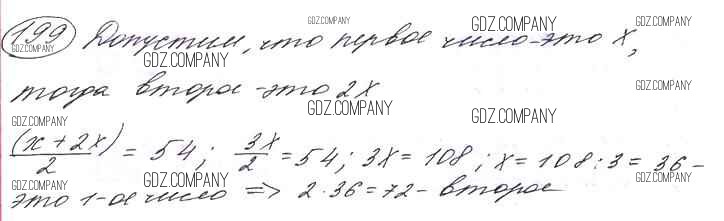 199 Допустим, что первое число-это х,
тогда второе-это 2х
(x+2x)/2 = 54; 3x/2 = 54; 3x = 108; x = 108:3 = 36 -
это 1-ое число => 2·36=72- второе
GDZ.COMPANY
GDZ.COMPANY
GDZ.COMPANY
GDZ.COMPANY
GDZ.COMPANY
GDZ.COMPANY
GDZ.COMPANY
GDZ.COMPANY
GDZ.COMPANY
GDZ.COMPANY
GDZ.COMPANY
GDZ.COMPANY